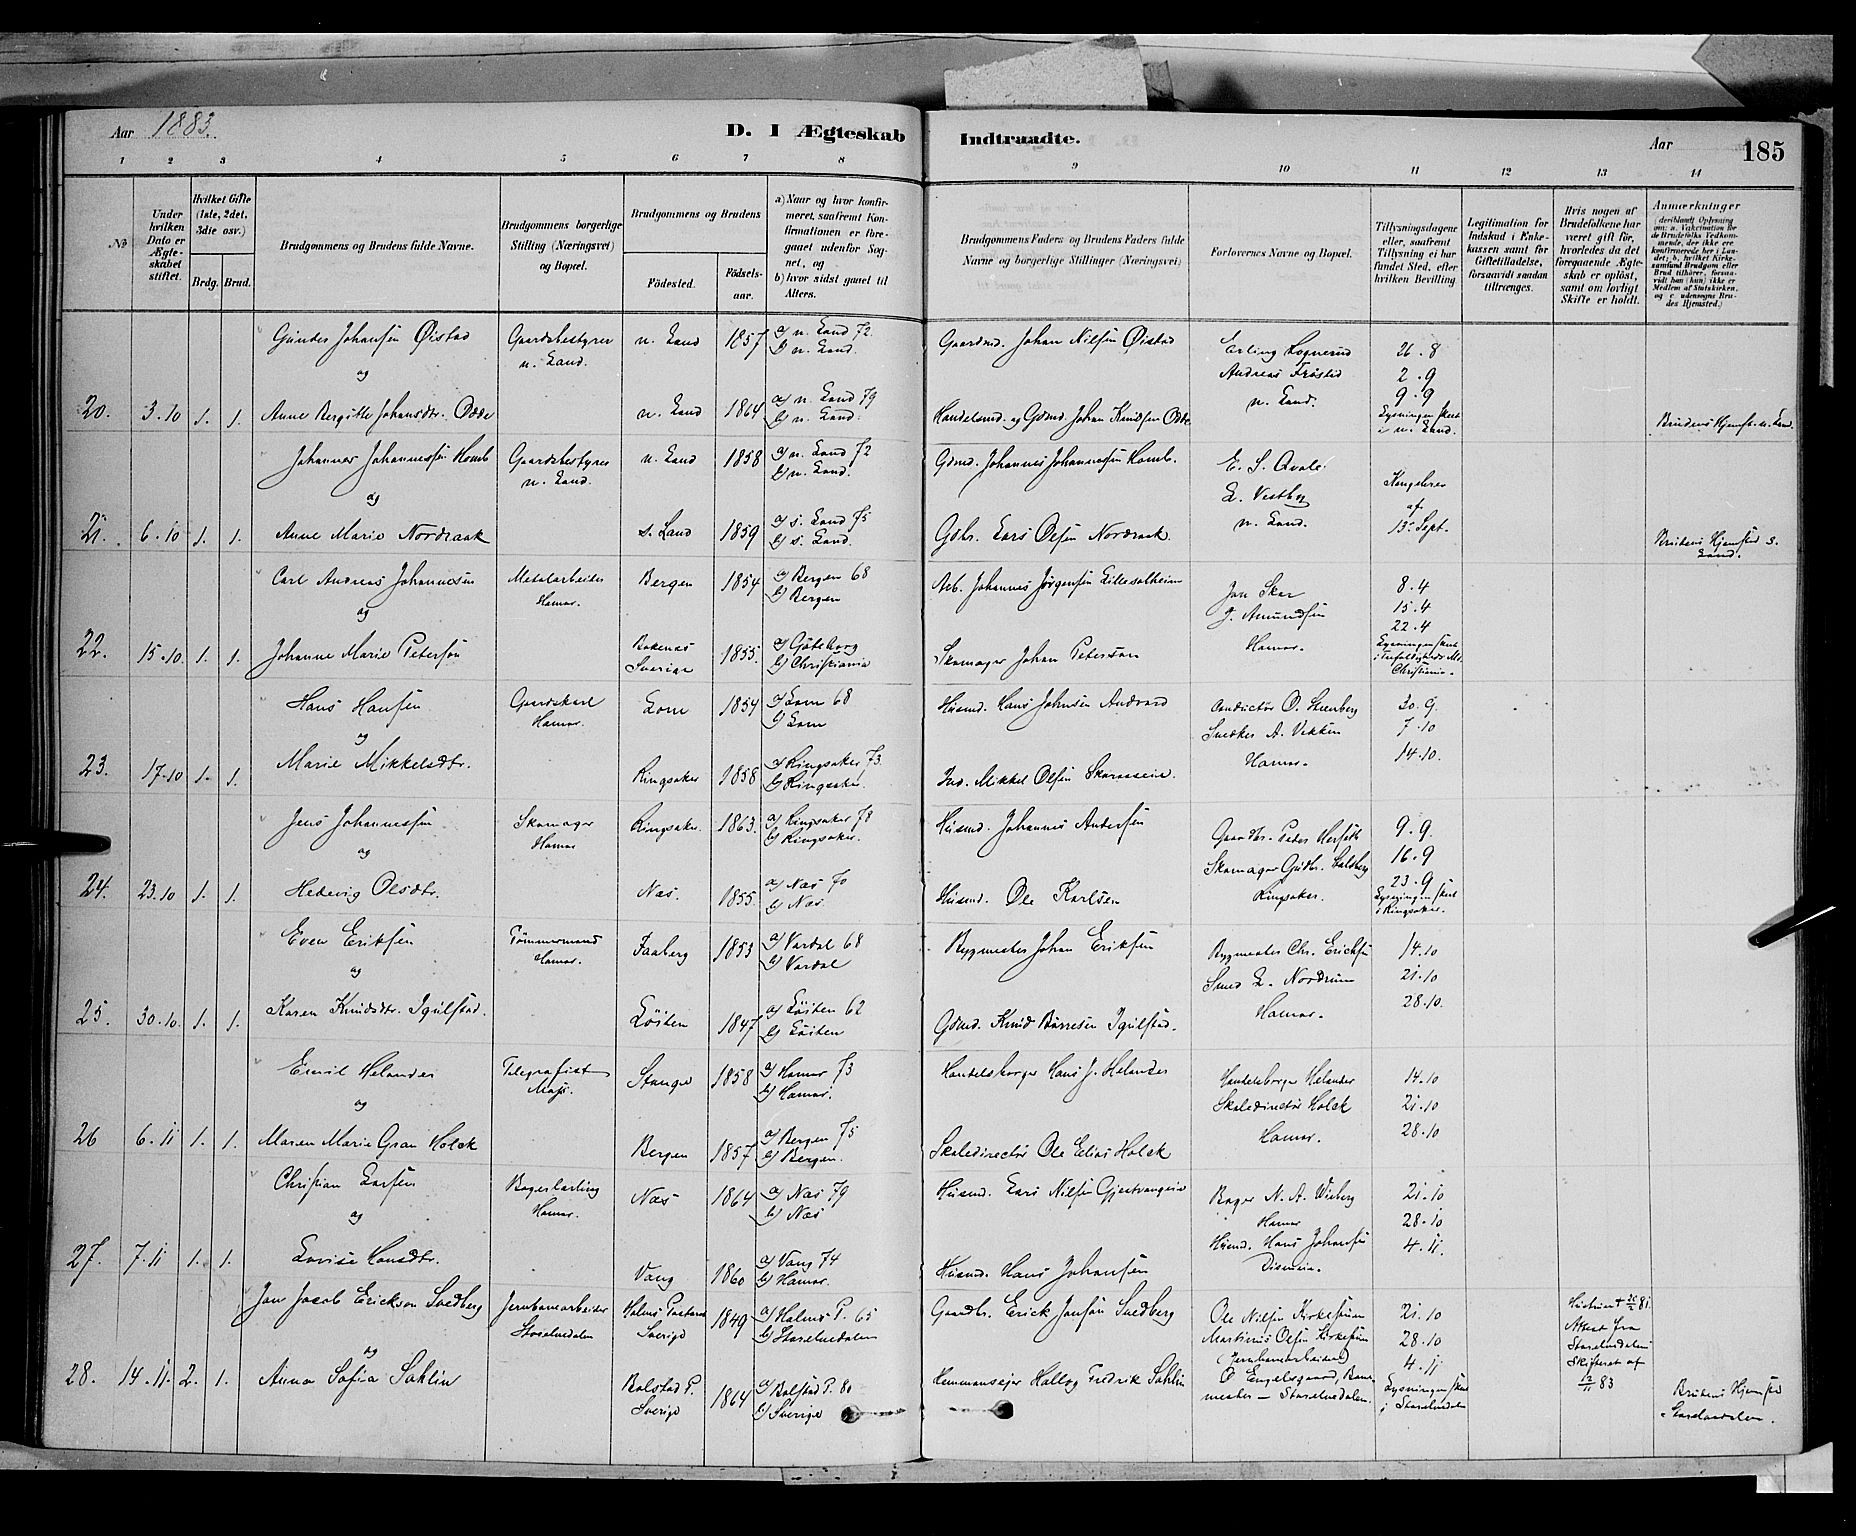 Aar 1883.
D. I Ægteskab Indtraadte.
Aar 185
1 2 3 4 5 6 7 8 9 10 11 12 13 14
No
Under hvilken Dato er Ægteskabet stiftet.
Hvilket Gifte (1ste, 2det, 3die osv.)
Brdg. Brud.
Brudgommens og Brudens fulde Navne.
Brudgommens borgerlige Stilling (Næringsvei) og Bopæl.
Brudgommens og Brudens
Fødested.
Fødselsaar.
a) Naar og hvor konfirmeret, saafremt Konfirmationen er foregaaet udenfor Sognet, og
b) hvor sidst gaaet til Alters.
Brudgommens Faders og Brudens Faders fulde Navne og borgerlige Stillinger (Næringsvei)
Forlovernes Navne og Bopæl.
Tillysningsdagene eller, saafremt Tillysning ei har fundet Sted, efter hvilken Bevilling.
Legitimation for Indskud i Enkekassen samt for Giftetilladelse, forsaavidt saadan tiltrænges.
Hvis nogen af Brudefolkene har været gift før, hvorledes da det foregaaende Ægteskab er opløst, samt om lovligt Skifte er holdt.
Anmærkninger
Gunder Johansen Øistad Gaardsbestyrer n. Land. n. Land 1857 a) n. Land 72 b) n. Land. Gaardmd. Johan Nilsen Øistad Erling Lognerud Andreas Frøstad n. Land. 26.8 2.9 9.9
og
20. 3.10 1. 1. Anne Bergitte Johansdtr. Odde n. Land 1864 a) n. Land 79 b) n. Land. Handelsmd. og Gdmd. Johan Knudsen Odde Lysningen skeet i n. Land. Brudens Hjemst. n. Land.
Johannes Johannessen Homb Gaardsbestyrer n. Land. n. Land 1858 a) n. Land 72 b) n. Land. Gdmd. Johannes Johannessen Homb. E. S. Qvale L. Vestby n. Land. Kongebrev af 13. Sept.
og
21. 6.10 1. 1. Anne Marie Nordraak s. Land 1859 a) s. Land 75 b) s. Land. Gdbr. Lars Olsen Nordraak. Brudens Hjemsted s. Land.
Carl Andreas Johannesen Metalarbeider Hamar. Bergen 1854 a) Bergen 68 b) Bergen Arb. Johannes Jørgensen Lillesolheim Jon Skar J. Amundsen Hamar. 8.4 15.4 22.4
og
22. 15.10 1. 1. Johanne Marie Petersen Bokenäs Sverige 1855. a) Göteborg b) Christiania Skomager Johan Peterson Lysningen skeet i Trefoldigheds M. Christiania.
Hans Hansen Gaardskarl Hamar. Lom 1854 a) Lom 68 b) Lom Husmd. Hans Johnsen Andvord Conductør O. Steenberg Snedker A. Vekken Hamar. 30.9. 7.10 14.10.
og
23. 17.10 1. 1. Marie Mikkelsdtr. Ringsaker 1858 a) Ringsaker 73. b) Ringsaker. Ind. Mikkel Olsen
Jens Johannessen Skomager Hamar Ringsaker. 1863. a) Ringsaker 78 b) Ringsaker. Husmd. Johannes Andersen Gaardbr. Peder Herseth Skomager Gudbr. Ringsaker. 9.9. 16.9 23.9
og
24. 23.10 1. 1. Hedevig Olsdtr. Næs. 1855. a) Næs 70 b) Næs. Husmd. Ole Karlsen Lysningen skeet i Ringsaker.
Even Eriksen Tømmermand Hamar. Faaberg 1853 a) Vardal 68 b) Vardal Bygmester Johan Eriksen Bygmester Chr. Ericksen Smed L. Nordrum Hamar. 14.10 21.10 28.10.
og
25. 30.10. 1. 1. Karen Knudsdtr. Igulstad. Løiten 1847 a) Løiten 62 b) Løiten Gdmd. Knud Børresen Igulstad.
Emil Helander Telegrafist Moss. Stange 1858 a) Hamar 73 b) Hamar. Handelsborger Hans J. Helander Handelsborger Helander Skoledirectør Holck Hamar. 14.10 21.10 28.10
og
26 6.11 1. 1. Maren Marie Gran Holck Bergen 1857 a) Bergen 75 b) Bergen. Skoledirectør Ole Elias Holck
Christian Larsen Bagerlærling Hamar. Næs 1864 a) Næs 79 b) Næs Husmd. Lars Nilsen Gjestvangeie Bager N. A. Wiberg Hamar Husmd. Hans Johansen 21.10 28.10 4.11.
og
27. 7.11 1. 1. Lovise Hansdtr. Vang 1860 a) Vang 74 b) Hamar. Husmd. Hans Johansen
Jan Jacob Erickson Svedberg Jernbanearbeider Storelvedalen Sverige 1849 a) Holms P. 65 b) Storelvedalen Gaardbr. Erick Jonsen Svedberg Ole Nilsen Kirkestuen Martinus Olsen Kirkestuen (Jernbanearbeidere) 21.10 28.10 4.11 Hustruen + 81. Attest fra Storelvedalen Skifteret af 12/11 83
og
28. 14.11. 2. 1. Anna Sofia Sahlin Bolstad P. Sverige 1864 a) Bolstad P. 80 b) Sverige Hemmansejer Fredrik Sahlin O. Engelsgaard, Banemester — Storelvedalen. Lysningen skeet i Storelvedalen Brudens Hjemsted Storelvedalen.